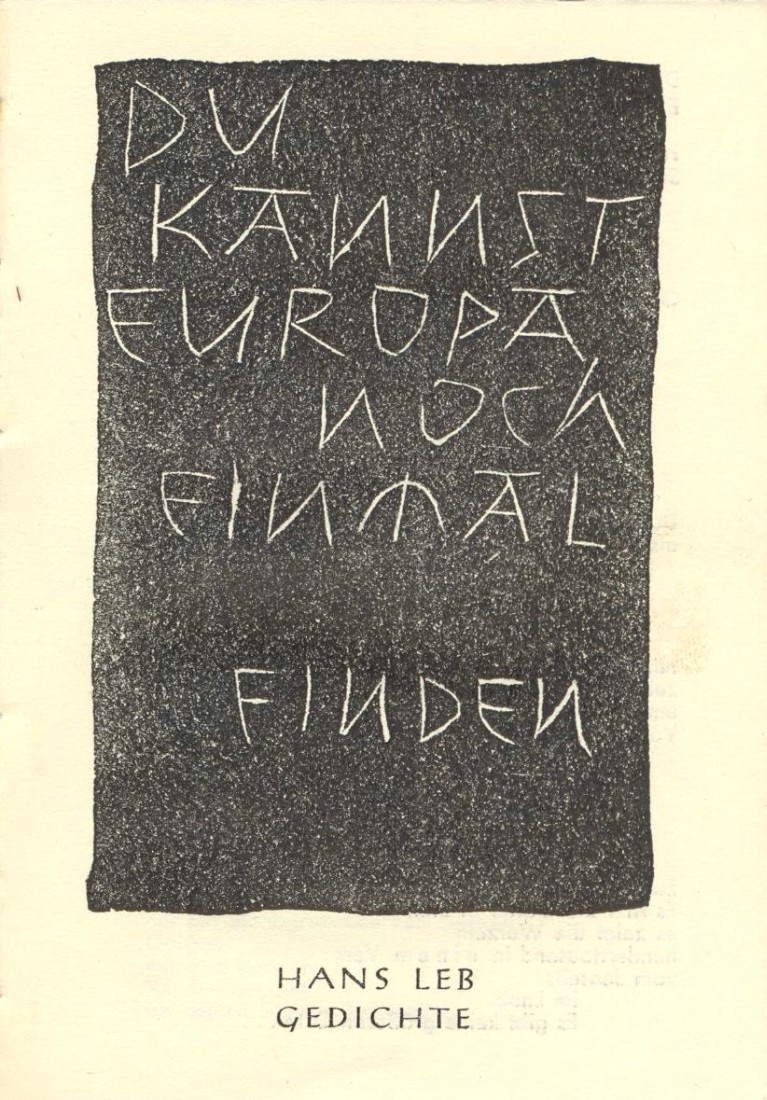 DU
KANNST
EUROPA
NOCH
EINMAL
FINDEN
HANS LEB
GEDICHTE